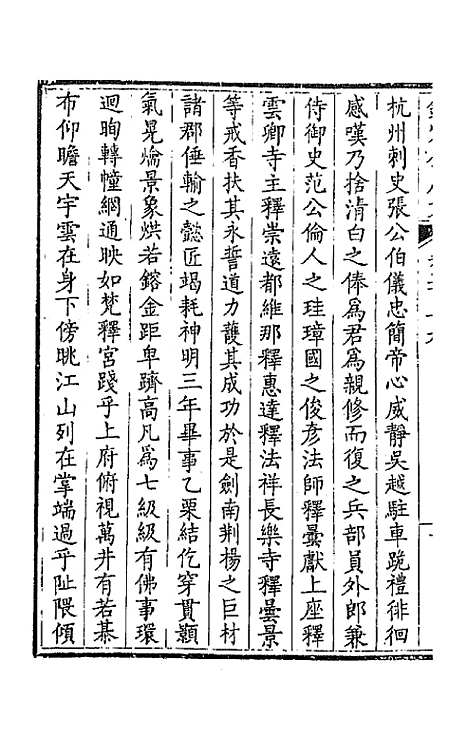 杭州刺史張公伯儀忠簡帝心威靜吳越駐車跪禮徘徊
感嘆乃捨清白之俸爲君爲親修而復之兵部員外郎兼
侍御史范公倫人之珪璋國之俊彥法師釋曇獻上座釋
雲卿寺主釋崇遠都維那釋惠達釋法祥長樂寺釋曇景
等戒香扶其永誓道力護其成功於是劍南荆楊之巨材
諸郡倕輸之懿匠竭耗神明三年畢事乙栗結仡穿貫顥
氣晃爚景象烘若鎔金距卑躋高凡爲七級級有佛事環
迴眴轉幢網通映如梵釋宮踐乎上府俯視萬井有若碁
布仰瞻天宇雲在身下傍眺江山列在掌端過乎阯隈傾